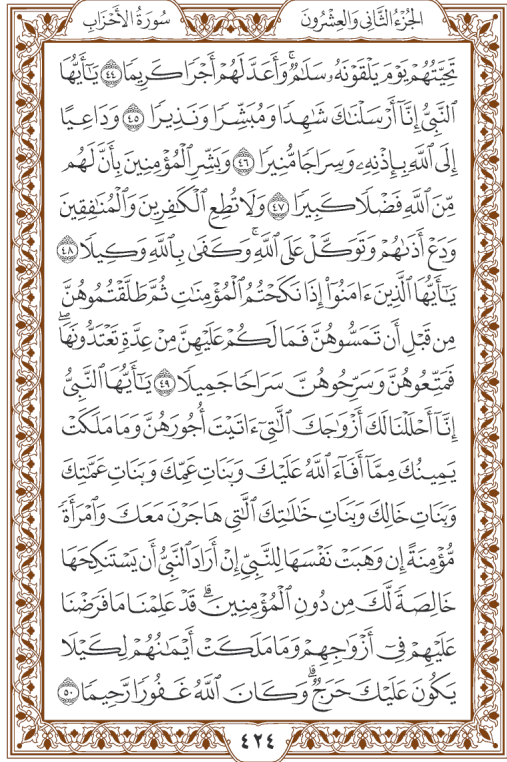 الجُزْءُ الثَّانِي وَالعِشْرُونَ سُورَةُ الأَحْزَابِ
تَحِيَّتُهُمْ يَوْمَ يَلْقَوْنَهُۥ سَلَٰمٌۚ وَأَعَدَّ لَهُمْ أَجْرًا كَرِيمًا ٤٤ يَٰٓأَيُّهَا
ٱلنَّبِىُّ إِنَّآ أَرْسَلْنَٰكَ شَٰهِدًا وَمُبَشِّرًا وَنَذِيرًا ٤٥ وَدَاعِيًا
إِلَى ٱللَّهِ بِإِذْنِهِۦ وَسِرَاجًا مُّنِيرًا ٤٦ وَبَشِّرِ ٱلْمُؤْمِنِينَ بِأَنَّ لَهُم
مِّنَ ٱللَّهِ فَضْلًا كَبِيرًا ٤٧ وَلَا تُطِعِ ٱلْكَٰفِرِينَ وَٱلْمُنَٰفِقِينَ
وَدَعْ أَذَىٰهُمْ وَتَوَكَّلْ عَلَى ٱللَّهِۚ وَكَفَىٰ بِٱللَّهِ وَكِيلًا ٤٨
يَٰٓأَيُّهَا ٱلَّذِينَ ءَامَنُوٓا۟ إِذَا نَكَحْتُمُ ٱلْمُؤْمِنَٰتِ ثُمَّ طَلَّقْتُمُوهُنَّ
مِن قَبْلِ أَن تَمَسُّوهُنَّ فَمَا لَكُمْ عَلَيْهِنَّ مِنْ عِدَّةٍ تَعْتَدُّونَهَاۖ
فَمَتِّعُوهُنَّ وَسَرِّحُوهُنَّ سَرَاحًا جَمِيلًا ٤٩ يَٰٓأَيُّهَا ٱلنَّبِىُّ
إِنَّآ أَحْلَلْنَا لَكَ أَزْوَٰجَكَ ٱلَّٰتِىٓ ءَاتَيْتَ أُجُورَهُنَّ وَمَا مَلَكَتْ
يَمِينُكَ مِمَّآ أَفَآءَ ٱللَّهُ عَلَيْكَ وَبَنَاتِ عَمِّكَ وَبَنَاتِ عَمَّٰتِكَ
وَبَنَاتِ خَالِكَ وَبَنَاتِ خَٰلَٰتِكَ ٱلَّٰتِى هَاجَرْنَ مَعَكَ وَٱمْرَأَةً
مُّؤْمِنَةً إِن وَهَبَتْ نَفْسَهَا لِلنَّبِىِّ إِنْ أَرَادَ ٱلنَّبِىُّ أَن يَسْتَنكِحَهَا
خَالِصَةً لَّكَ مِن دُونِ ٱلْمُؤْمِنِينَۗ قَدْ عَلِمْنَا مَا فَرَضْنَا
عَلَيْهِمْ فِىٓ أَزْوَٰجِهِمْ وَمَا مَلَكَتْ أَيْمَٰنُهُمْ لِكَيْلَا
يَكُونَ عَلَيْكَ حَرَجٌۗ وَكَانَ ٱللَّهُ غَفُورًا رَّحِيمًا ٥٠
٤٢٤